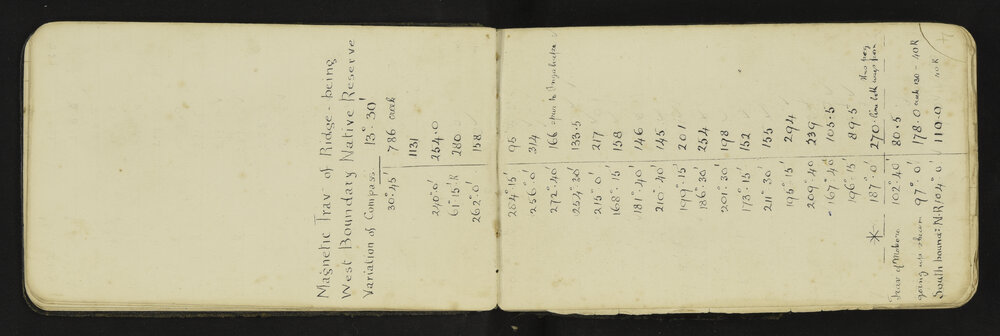 Magnetic Trav. of Ridge - being
West Boundary Native Reserve
Variation of Compass 13° 30'
30° 45' 786 creek
1131
240° 0' 254.0
61° 15' R 280
262° 0' 158
264° 15' 95
256° 0' 314
272° 40' 166 spur to
254° 30' 133.5
215° 0' 217
168° 15' 158
181° 40' 146
210° 40' 145
199° 15' 201
186° 30' 254
201° 30' 198
173° 15' 152
211° 30' 155
195° 15' 294
209° 40 239
167° 40 105.5
196° 15' 89.5
* 187° 0' 270. line both ways from this peg
Trav of 102° 40' 80.5
going up stream 97° 0' 178.0 creek 130 - 40 R
South bound: N.R 104° 0' 110.0 40 R